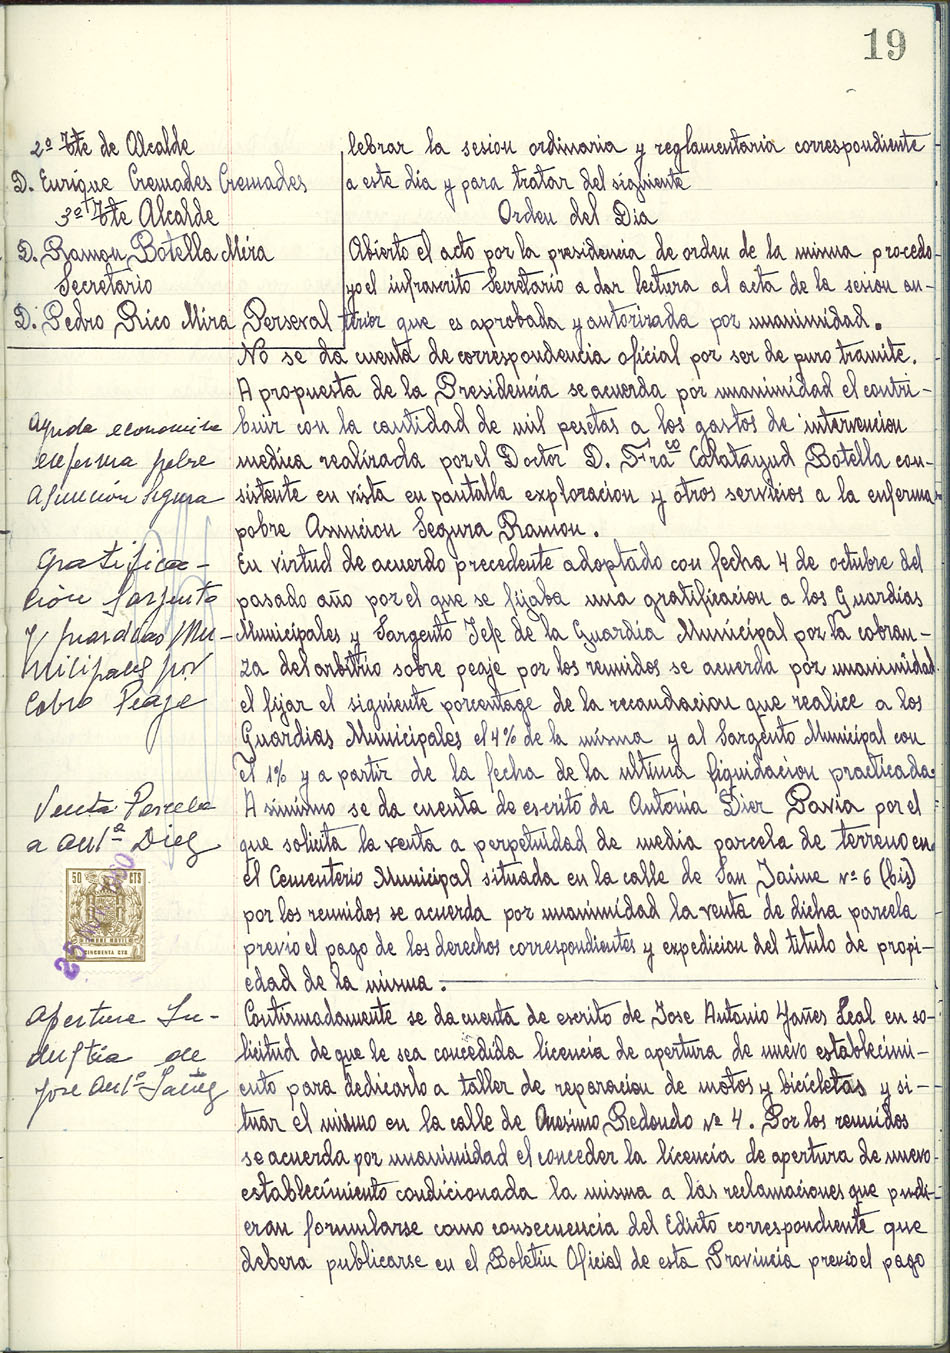 19
2º Tte de Alcalde
D. Enrique Cremades Cremades
3º Tte Alcalde
D. Ramon Botella Mira
Secretario
D. Pedro Rico Mira Perseval
lebrar la sesion ordinaria y reglamentaria correspondiente
a este dia y para tratar del siguiente
Orden del Dia
Abierto el acto por la presidencia de orden de la misma procedo
yo el infrascrito Secretario a dar lectura al acta de la sesion an-
terior que es aprobada y autorizada por unanimidad.
No se da cuenta de correspondencia oficial por ser de puro tramite.
Ayuda economica
enferma pobre
Asunción Segura
A propuesta de la Presidencia se acuerda por unanimidad el contri-
buir con la cantidad de mil pesetas a los gastos de intervencion
medica realizada por el Doctor D. Fraco Calatayud Botella con-
sistente en vista en pantalla exploracion y otros servicios a la enferma
pobre Asuncion Segura Ramon.
Gratifica-
ción Sargento
y guardias Mu-
nicipales por
Cobro Peaje
En virtud de acuerdo precedente adoptado con fecha 4 de octubre del
pasado año por el que se fijaba una gratificacion a los Guardias
Municipales y Sargento Jefe de la Guardia Municipal por la cobran-
za del arbitrio sobre peaje por los reunidos se acuerda por unanimidad
el fijar el siguiente porcentage de la recaudacion que realice a los
Guardias Municipales el 4% de la misma y al Sargento Municipal con
el 1% y a partir de la fecha de la ultima liquidacion practicada.
Venta Parcela
a Antª Diez
50 CTS
TIMBRE MOVIL
CINCUENTA CTS
Asimismo se da cuenta de escrito de Antonia Dier Pavia por el
que solicita la venta a perpetuidad de media parcela de terreno en
el Cementerio Municipal situada en la calle de San Jaime nº 6 (bis)
por los reunidos se acuerda por unanimidad la venta de dicha parcela
previo el pago de los derechos correspondientes y expedicion del titulo de propi-
edad de la misma.
Apertura In-
dustria de
Jose Antº Yañez
Continuadamente se da cuenta de escrito de Jose Antonio Yañes Leal en so-
licitud de que le sea concedida licencia de apertura de nuevo establecimi-
ento para dedicarlo a taller de reparacion de motos y bicicletas y si-
tuar el mismo en la calle de Onesimo Redondo nº 4. Por los reunidos
se acuerda por unanimidad el conceder la licencia de apertura de nuevo
establecimiento condicionada la misma a las reclamaciones que pudi-
eran formularse como consecuencia del Edicto correspondiente que
debera publicarse en el Boletin Oficial de esta Provincia previo el pago